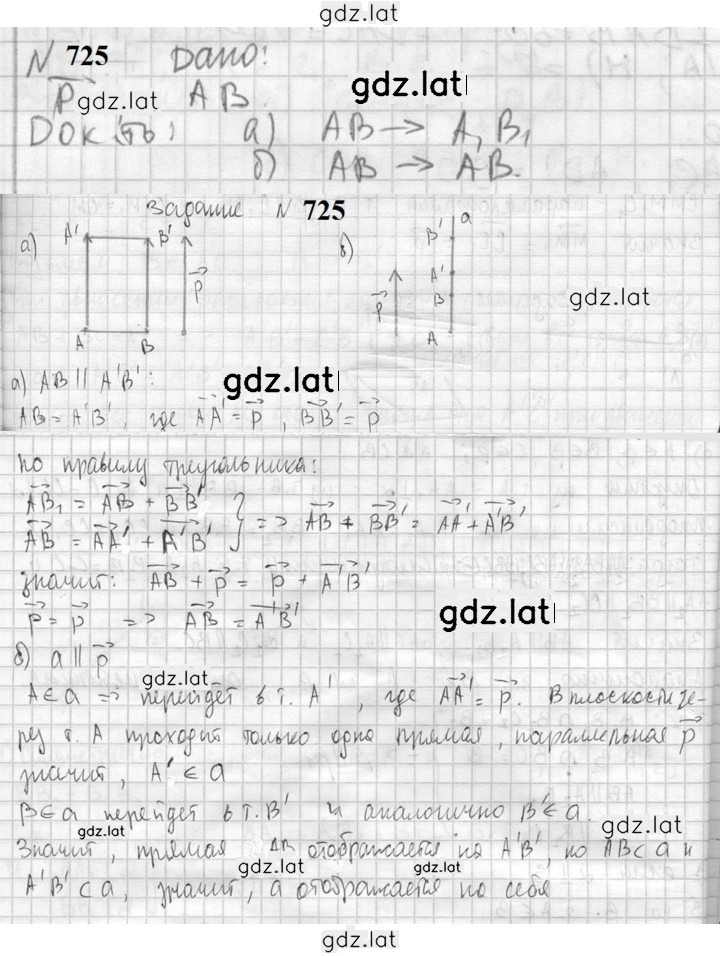 gdz.lat
N 725 Дано:
p⃗ gdz.lat AB. gdz.lat
Док-ть: а) AB → A₁B₁
б) AB → AB.
Задание N 725
а) A' B' p⃗ A B
б) a B' A' B A p⃗
gdz.lat
а) AB || A'B':
gdz.lat
AB = A'B', где AA'⃗ = p⃗, BB'⃗ = p⃗
по правилу треугольника:
AB₁⃗ = AB⃗ + BB'⃗
AB⃗ = AA'⃗ + A'B'⃗ } => AB⃗ + BB'⃗ = AA'⃗ + A'B'⃗
значит: AB⃗ + p⃗ = p⃗ + A'B'⃗
p⃗ = p⃗ => AB⃗ = A'B'⃗
gdz.lat
б) a || p⃗
gdz.lat
A∈a => перейдёт в т. A', где AA'⃗ = p⃗. В плоскости че-
рез т. A проходит только одна прямая, параллельная p⃗
значит, A' ∈ a
B∈a перейдет в т. B' и аналогично B'∈a.
gdz.lat
Значит, прямая AB отображается на A'B', но AB⊂a и
gdz.lat gdz.lat
A'B'⊂a, значит, a отображается на себя
gdz.lat